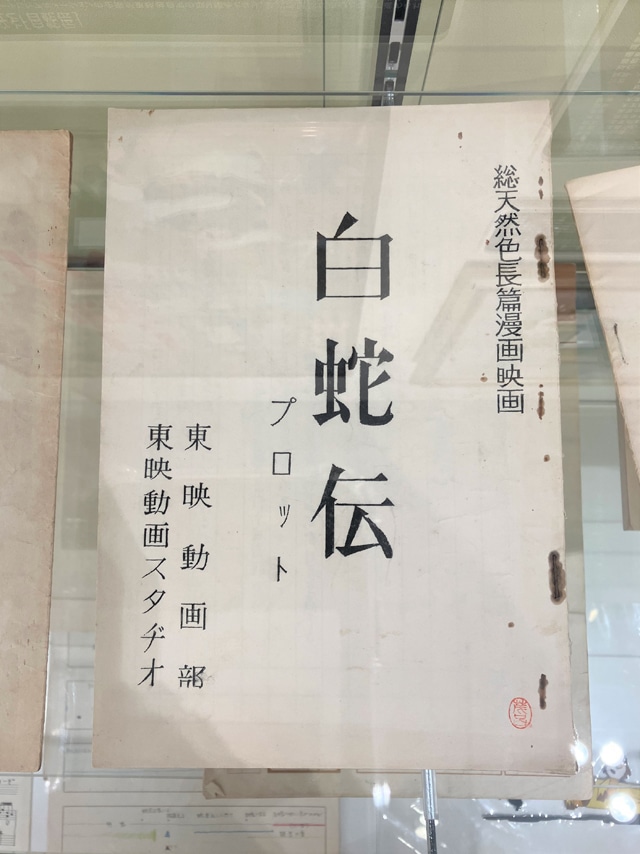 総天然色長篇漫画映画
白蛇伝
プロット
東映動画部
東映動画スタヂオ